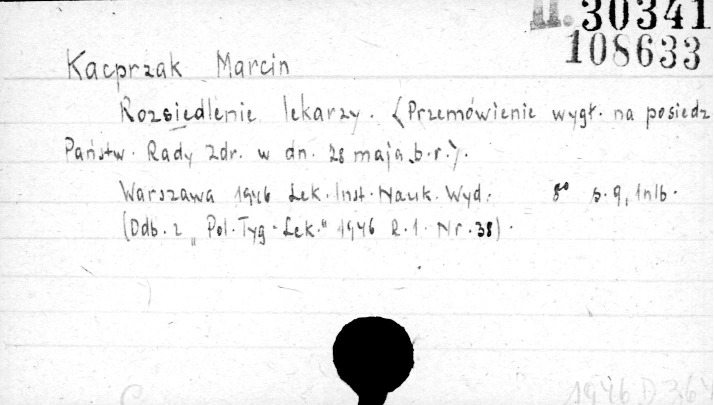 II. 30341
108633
Kacprzak Marcin
Rozsiedlenie lekarzy. (Przemówienie wygł. na posiedz
Państw. Rady Zdr. w dn. 28 maja b.r.).
Warszawa 1946 Lek. Inst. Nauk. Wyd. 8° s. 9, 1nlb.
(Odb. z „Pol. Tyg. Lek." 1946 R. 1. Nr. 38).
1946 D 364